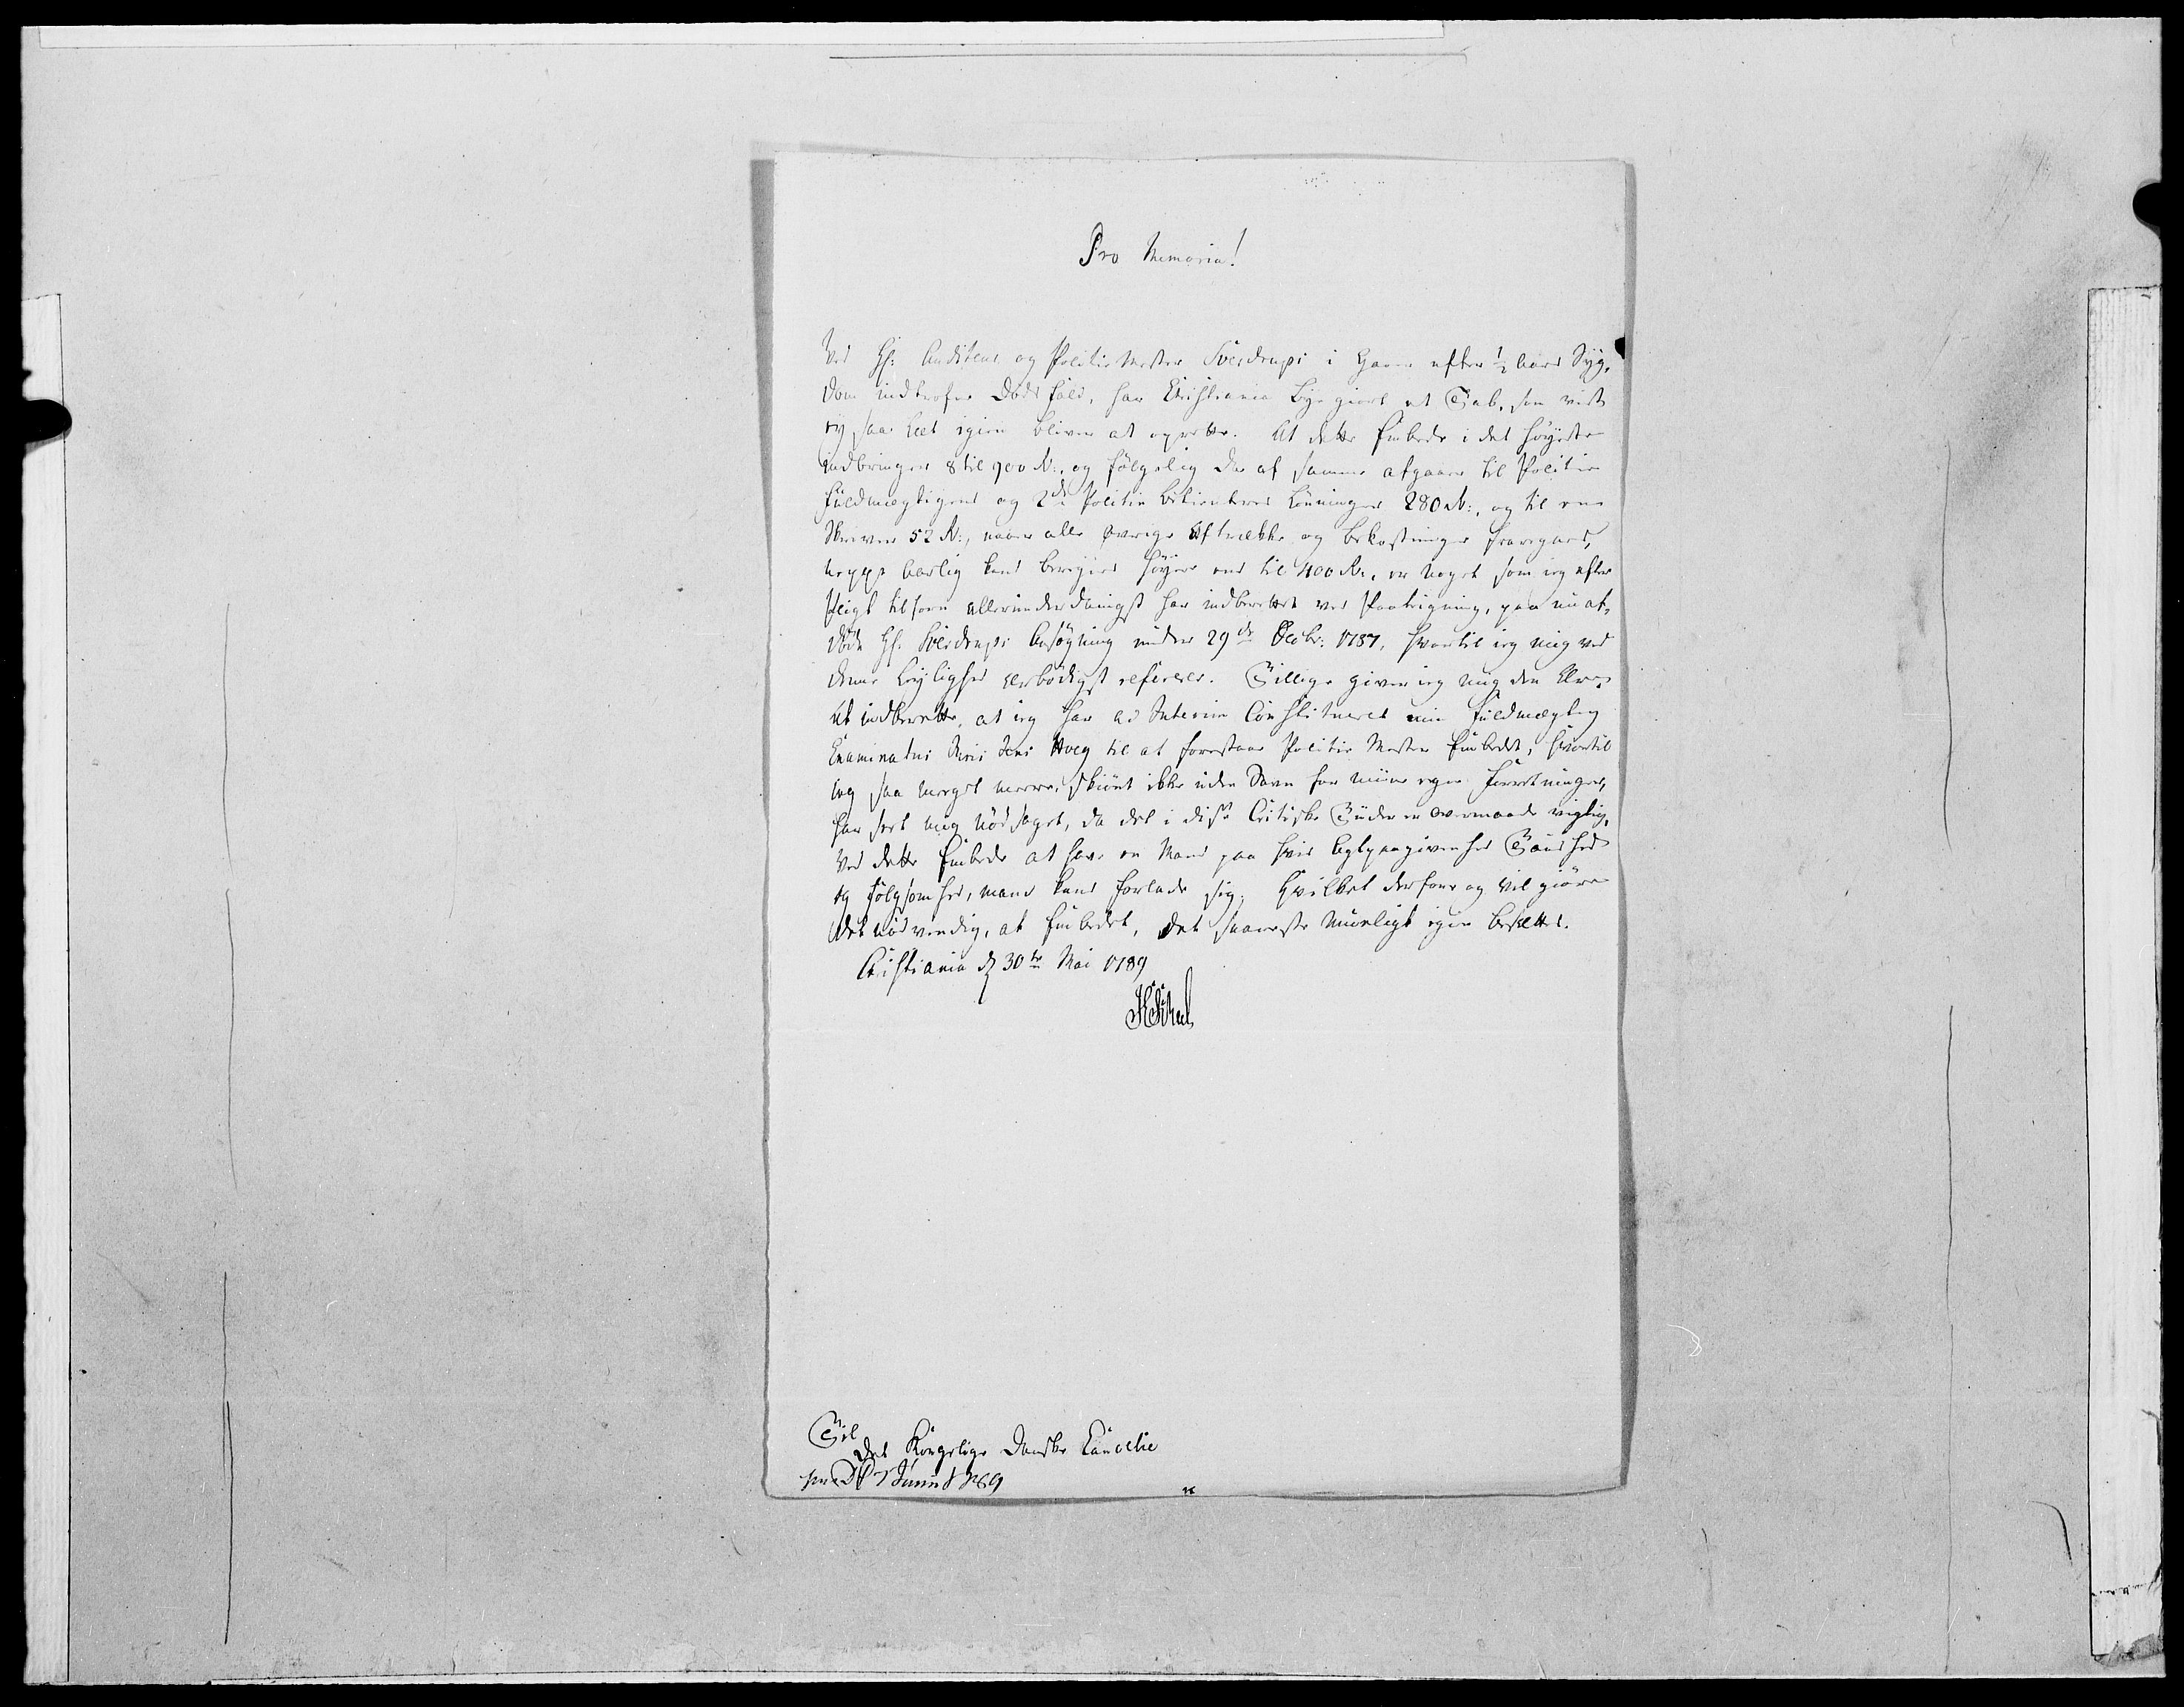 Pro Memoria!
Ved Hr: Auditeur og Politie Mester Sverdrups i Gaar efter 1/2 aars Syg-
dom indtrofne Dødsfald, har Christiania Bye giort et Tab, som vist
ey saa let igien bliver at oprette. At dette Embede i det høyeste
indbringer 8 til 900 Rd:, og følgelig da af samme afgaaer til Politie
Fuldmægtigens og 2de Politie Betienteres Lønninger 280 Rd:, og til en
Skriver 52 Rd:, naar alle øvrige Aftrække og Bekostninger fraregnes,
neppe aarlig kand beregnes høyere end til 400 Rd:, er noget som ieg efter
Pligt tilforn allerunderdanigst har indberettet ved Paategning, paa nu af-
døde Hr. Sverdrups Ansøgning under 29de Octbr: 1787, hvortil ieg mig ved
denne Leylighed ærbødigst refererer. Tillige giver ieg mig den Ære
at indberette, at ieg har ad Interim Constitueret min Fuldmægtig
Examinatus Juris Jens Hoeg til at forestaae Politie Mester Embedet, hvortil
ieg saa meget meere, skiønt ikke uden Savn for mine egne Forretninger,
har seet mig nødsaget, da det i disse Critiske Tiider er overmaade vigtig,
ved dette Embede at have en Mand paa hvis Agtpaagivenhed Taushed
og Følgsomhed, mand kand forlade sig; Hvilket derfore og vil giøre
det nødvendig, at Embedet, det snareste muueligt igien besættes.
Christiania d 30te Mai 1789
Til
Det Kongelige Danske Cancelie
1789